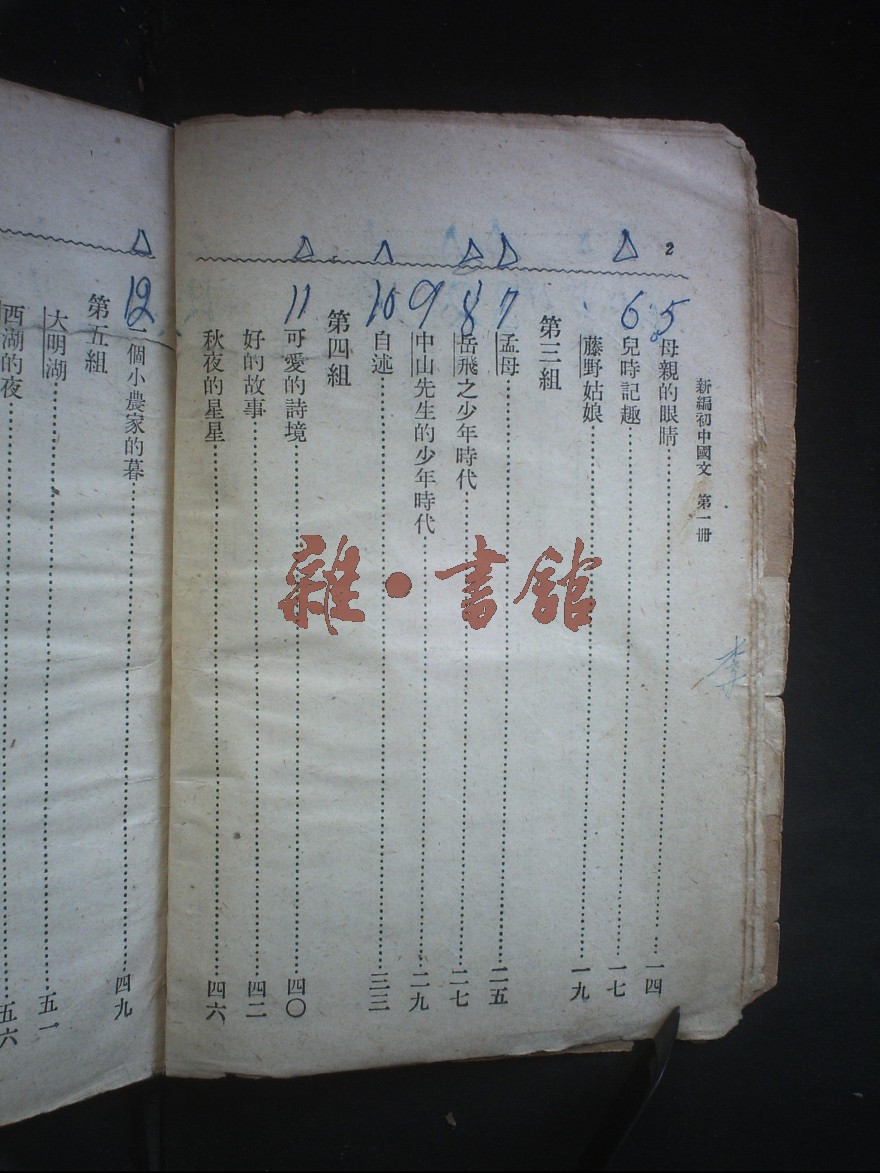 2
新編初中國文 第一冊
5 母親的眼睛 一四
6 兒時記趣 一七
藤野姑娘 一九
第三組
7 孟母 二五
8 岳飛之少年時代 二七
9 中山先生的少年時代 二九
10 自述 三三
第四組
11 可愛的詩境 四〇
好的故事 四二
秋夜的星星 四六
12 一個小農家的暮 四九
第五組
大明湖 五一
西湖的夜 五六
李
雜·書館